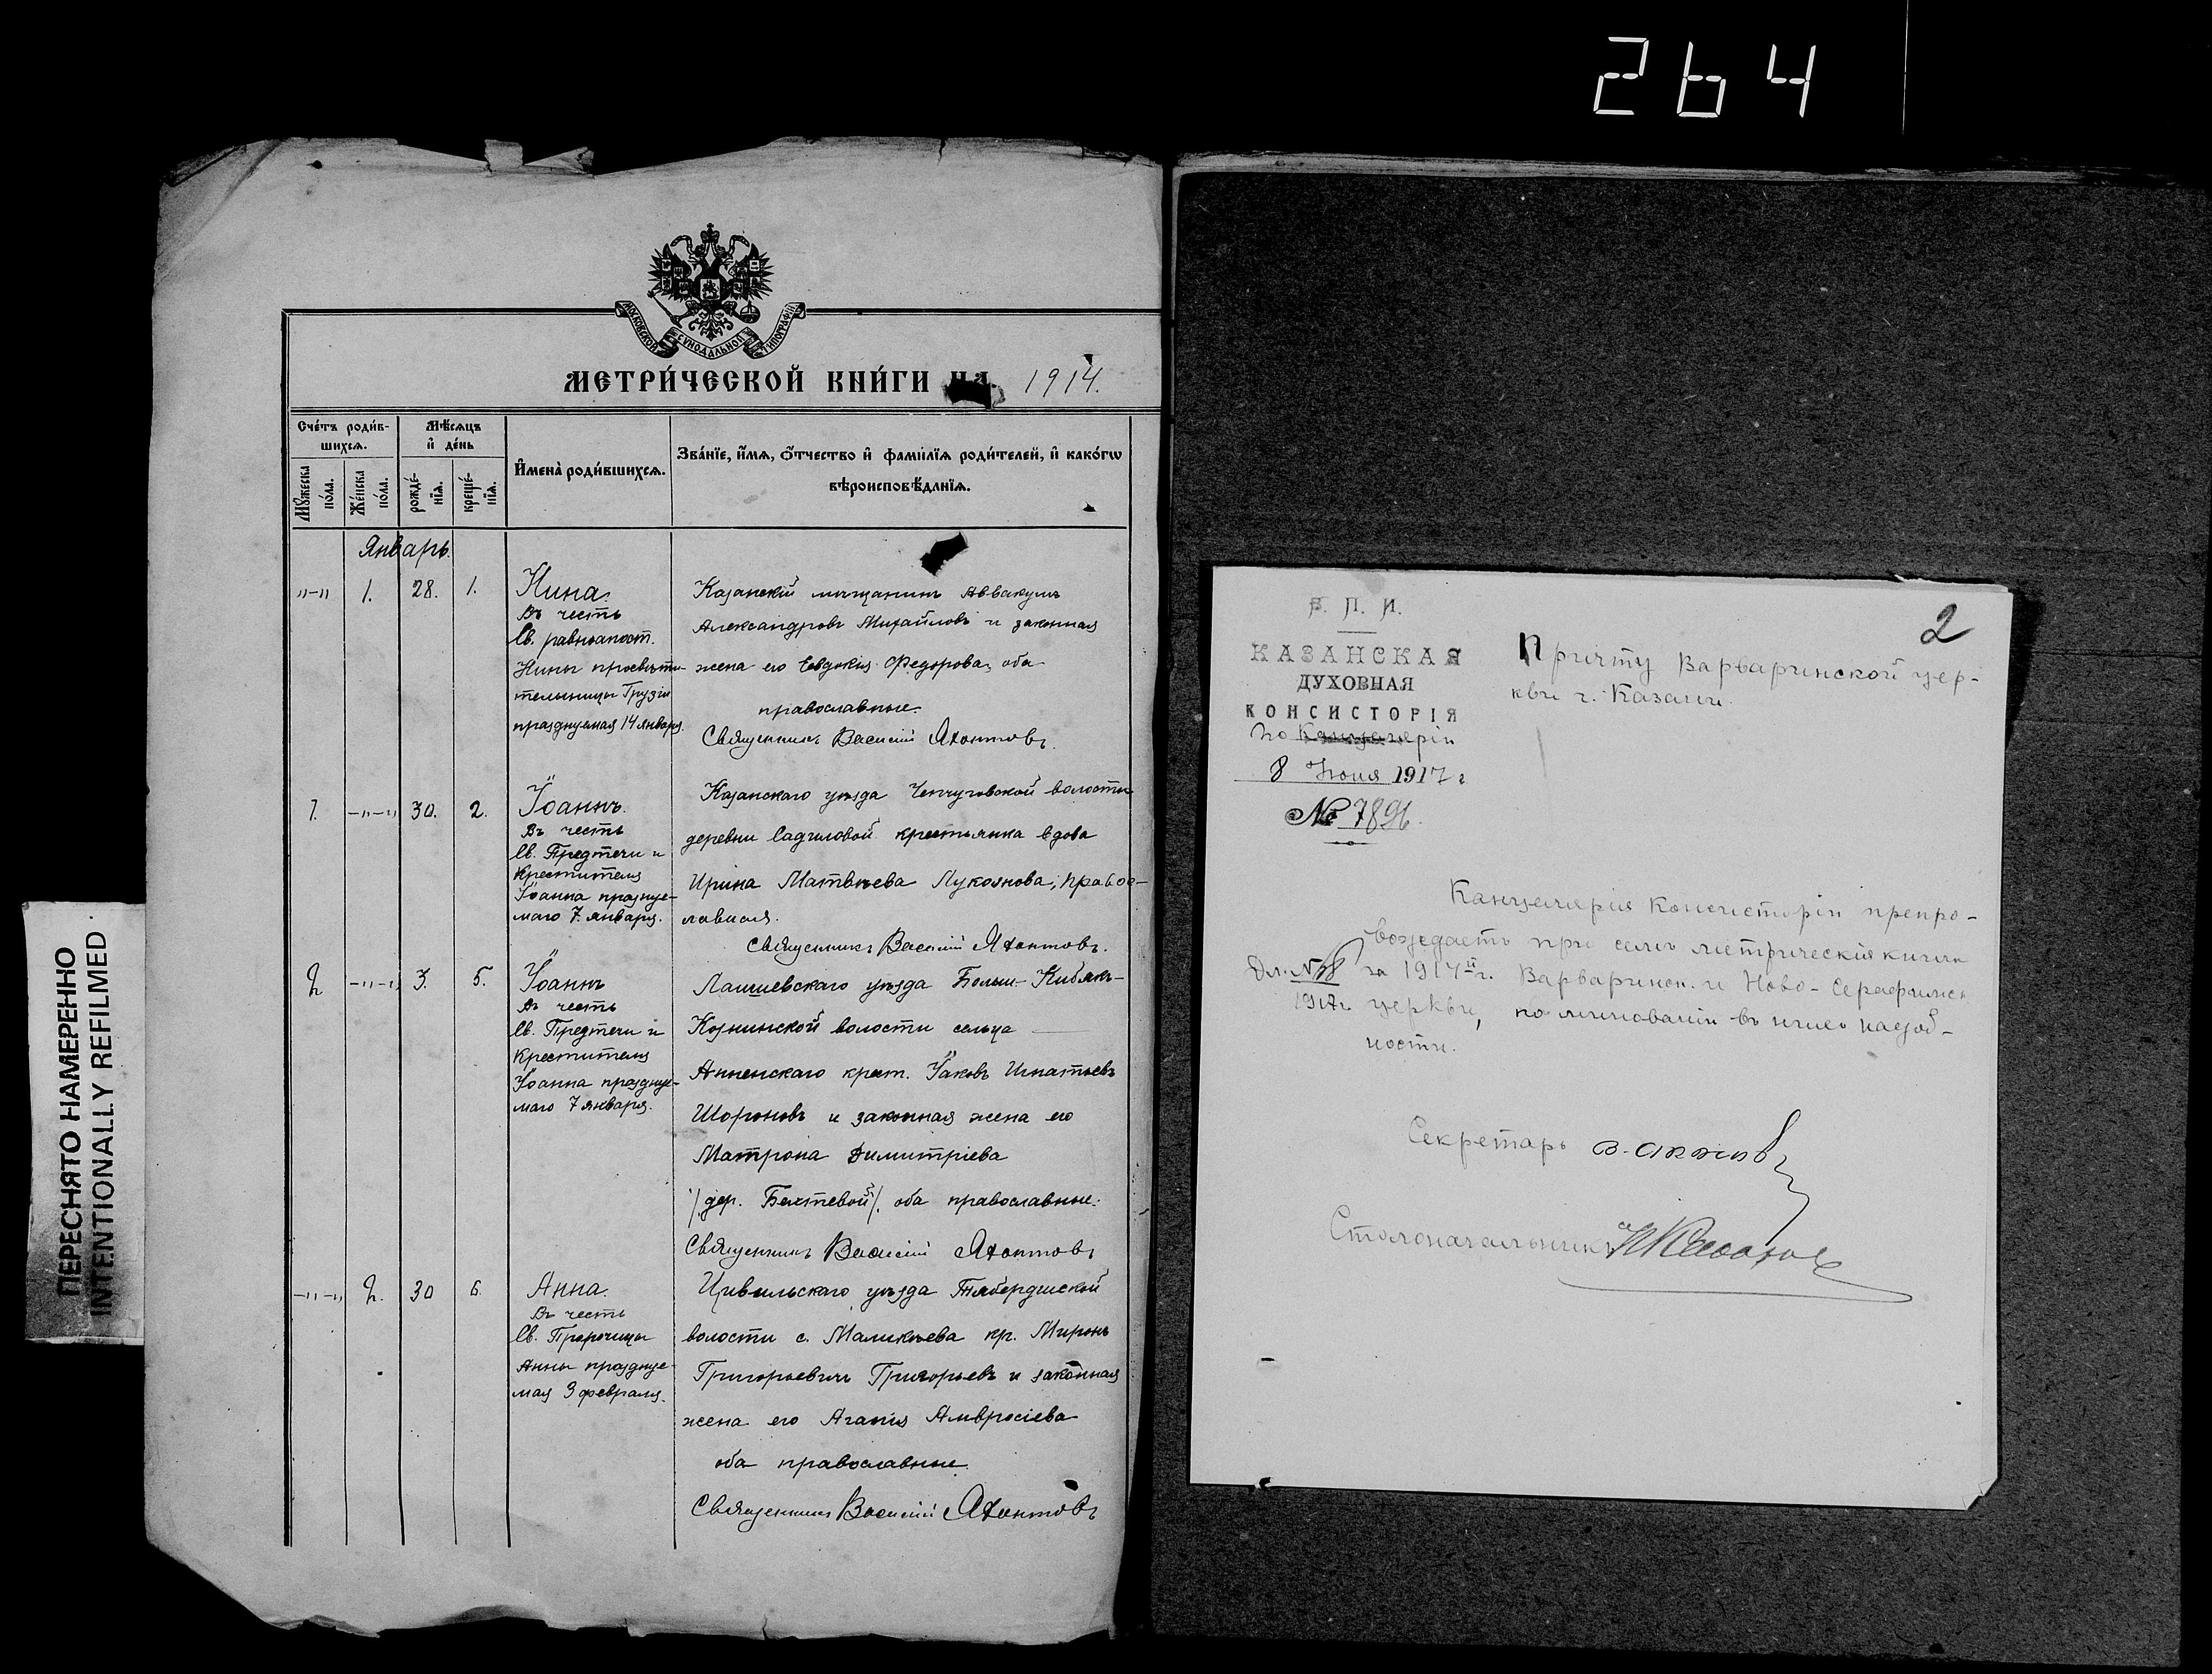 264
ПЕРЕСНЯТО НАМЕРЕННО
INTENTIONALLY REFILMED
МОСКОВСКОЙ СѴНОДАЛЬНОЙ ТИПОГРАФІИ
МЕТРИ́ЧЕСКОЙ КНИ́ГИ НА 1914.
Сче́тъ роди́в-
шихся.
Мѣ́сяцъ
и҆ де́нь
Мꙋ́жеска
по́ла.
Же́нска
по́ла.
рожде́-
нїя.
креще́-
нїя.
И҆мена̀ роди́вшихся.
Зва́нїе, и҆́мя, ѻ҆́тчество и҆ фами́лїя роди́телей, и҆ како́гѡ
вѣроисповѣ́данїя.
Январь.
"-" 1. 28. 1.
Нина.
Въ честь
Св. равноапост.
Нины просвѣти-
тельницы Грузіи
празднуемая 14 января.
Казанскій мѣщанинъ Аввакумъ
Александровъ Михайловъ и законная
жена его Евдокия Федорова, оба
православные.
Священникъ Василій Яхонтовъ.
1. -"-" 30. 2.
Іоаннъ.
Въ честь
Св. Предтечи и
Крестителя
Іоанна праздуе-
маго 7 января.
Казанскаго уѣзда Чепчуговской волости
деревни Садиловой крестьянка вдова
Ирина Матвѣева Лукоянова, право-
лавная.
Священникъ Василій Яхонтовъ.
2 -"-" 3. 5.
Іоаннъ
Въ честь
Св. Предтечи и
Крестителя
Іоанна праздуе-
маго 7 января.
Лаишевскаго уѣзда Больш.-Кибякъ-
Козинской волости сельца
Анненскаго крест. Іаковъ Игнатьевъ
Шороновъ и законная жена его
Матрона Димитріева
/дер. Бехтевой/. оба православные.
Священникъ Василій Яхонтовъ
-"-" 2. 30 6.
Анна.
Въ честь
Св. Пророчицы
Анны праздуе-
мая 3 февраля.
Цивильскаго уѣзда Тябердинской
волости с. Маликѣева кр. Миронъ
Григорьевичъ Григорьевъ и законная
жена его Агапія Амвросіева
оба православные.
Священникъ Василій Яхонтовъ
2
В. П. И.
КАЗАНСКАЯ
ДУХОВНАЯ
КОНСИСТОРІЯ
По Канцеляріи
8 Іюня 1917 г
№ 7896.
Причту Варваринской цер-
кви г. Казани.
Канцелярія Консисторіи препро-
вождаетъ при семъ метрическія книги
за 1914 г. Варваринск. и Ново-Серафимск
церкви, по минованіи въ нихъ надоб-
ности.
Дл. №
1917 г
Секретарь
Столоначальникъ